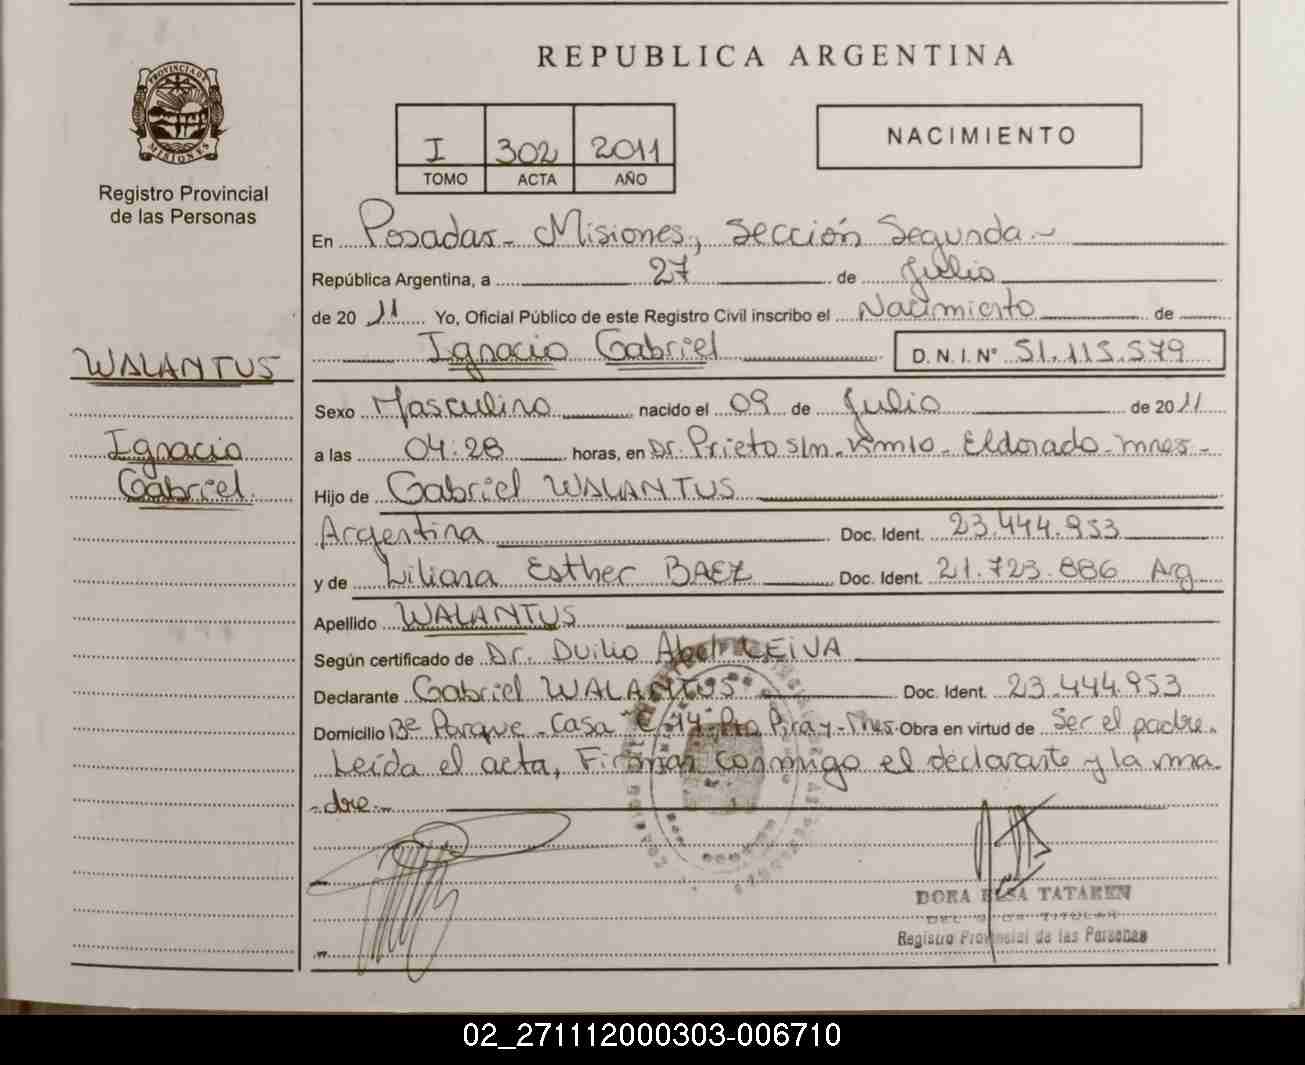 REPUBLICA ARGENTINA
PROVINCIA DE
MISIONES
Registro Provincial
de las Personas
I 302 2011
TOMO ACTA AÑO
NACIMIENTO
En Posadas - Misiones, Sección Segunda -
República Argentina, a 27 de Julio
de 20 11 Yo, Oficial Público de este Registro Civil inscribo el Nacimiento de
Ignacio Gabriel D.N.I.Nº 51.115.579
WALANTUS
Ignacio
Gabriel.
Sexo Masculino nacido el 09 de Julio de 2011
a las 04:28 horas, en Dr. Prieto s/n. Km10 - Eldorado - Mnes -
Hijo de Gabriel WALANTUS
Argentina Doc. Ident. 23.444.953
y de Liliana Esther BAEZ Doc. Ident. 21.723.886 Arg
Apellido WALANTUS
Según certificado de Dr. Duilio Abel LEIVA
Declarante Gabriel WALANTUS Doc. Ident. 23.444.953
Domicilio Bº Parque - Casa C/14 - Pto Piray - Mnes Obra en virtud de Ser el padre.
Leída el acta, Firman conmigo el declarante y la ma-
-dre.-
DORA ELSA TATAREN
TITULAR
Registro Provincial de las Personas
02_271112000303-006710